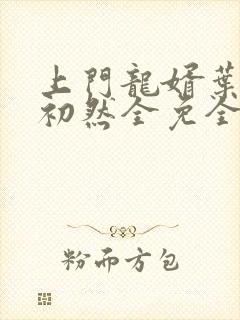 上門龍婿葉
初然全免全
粉而方包